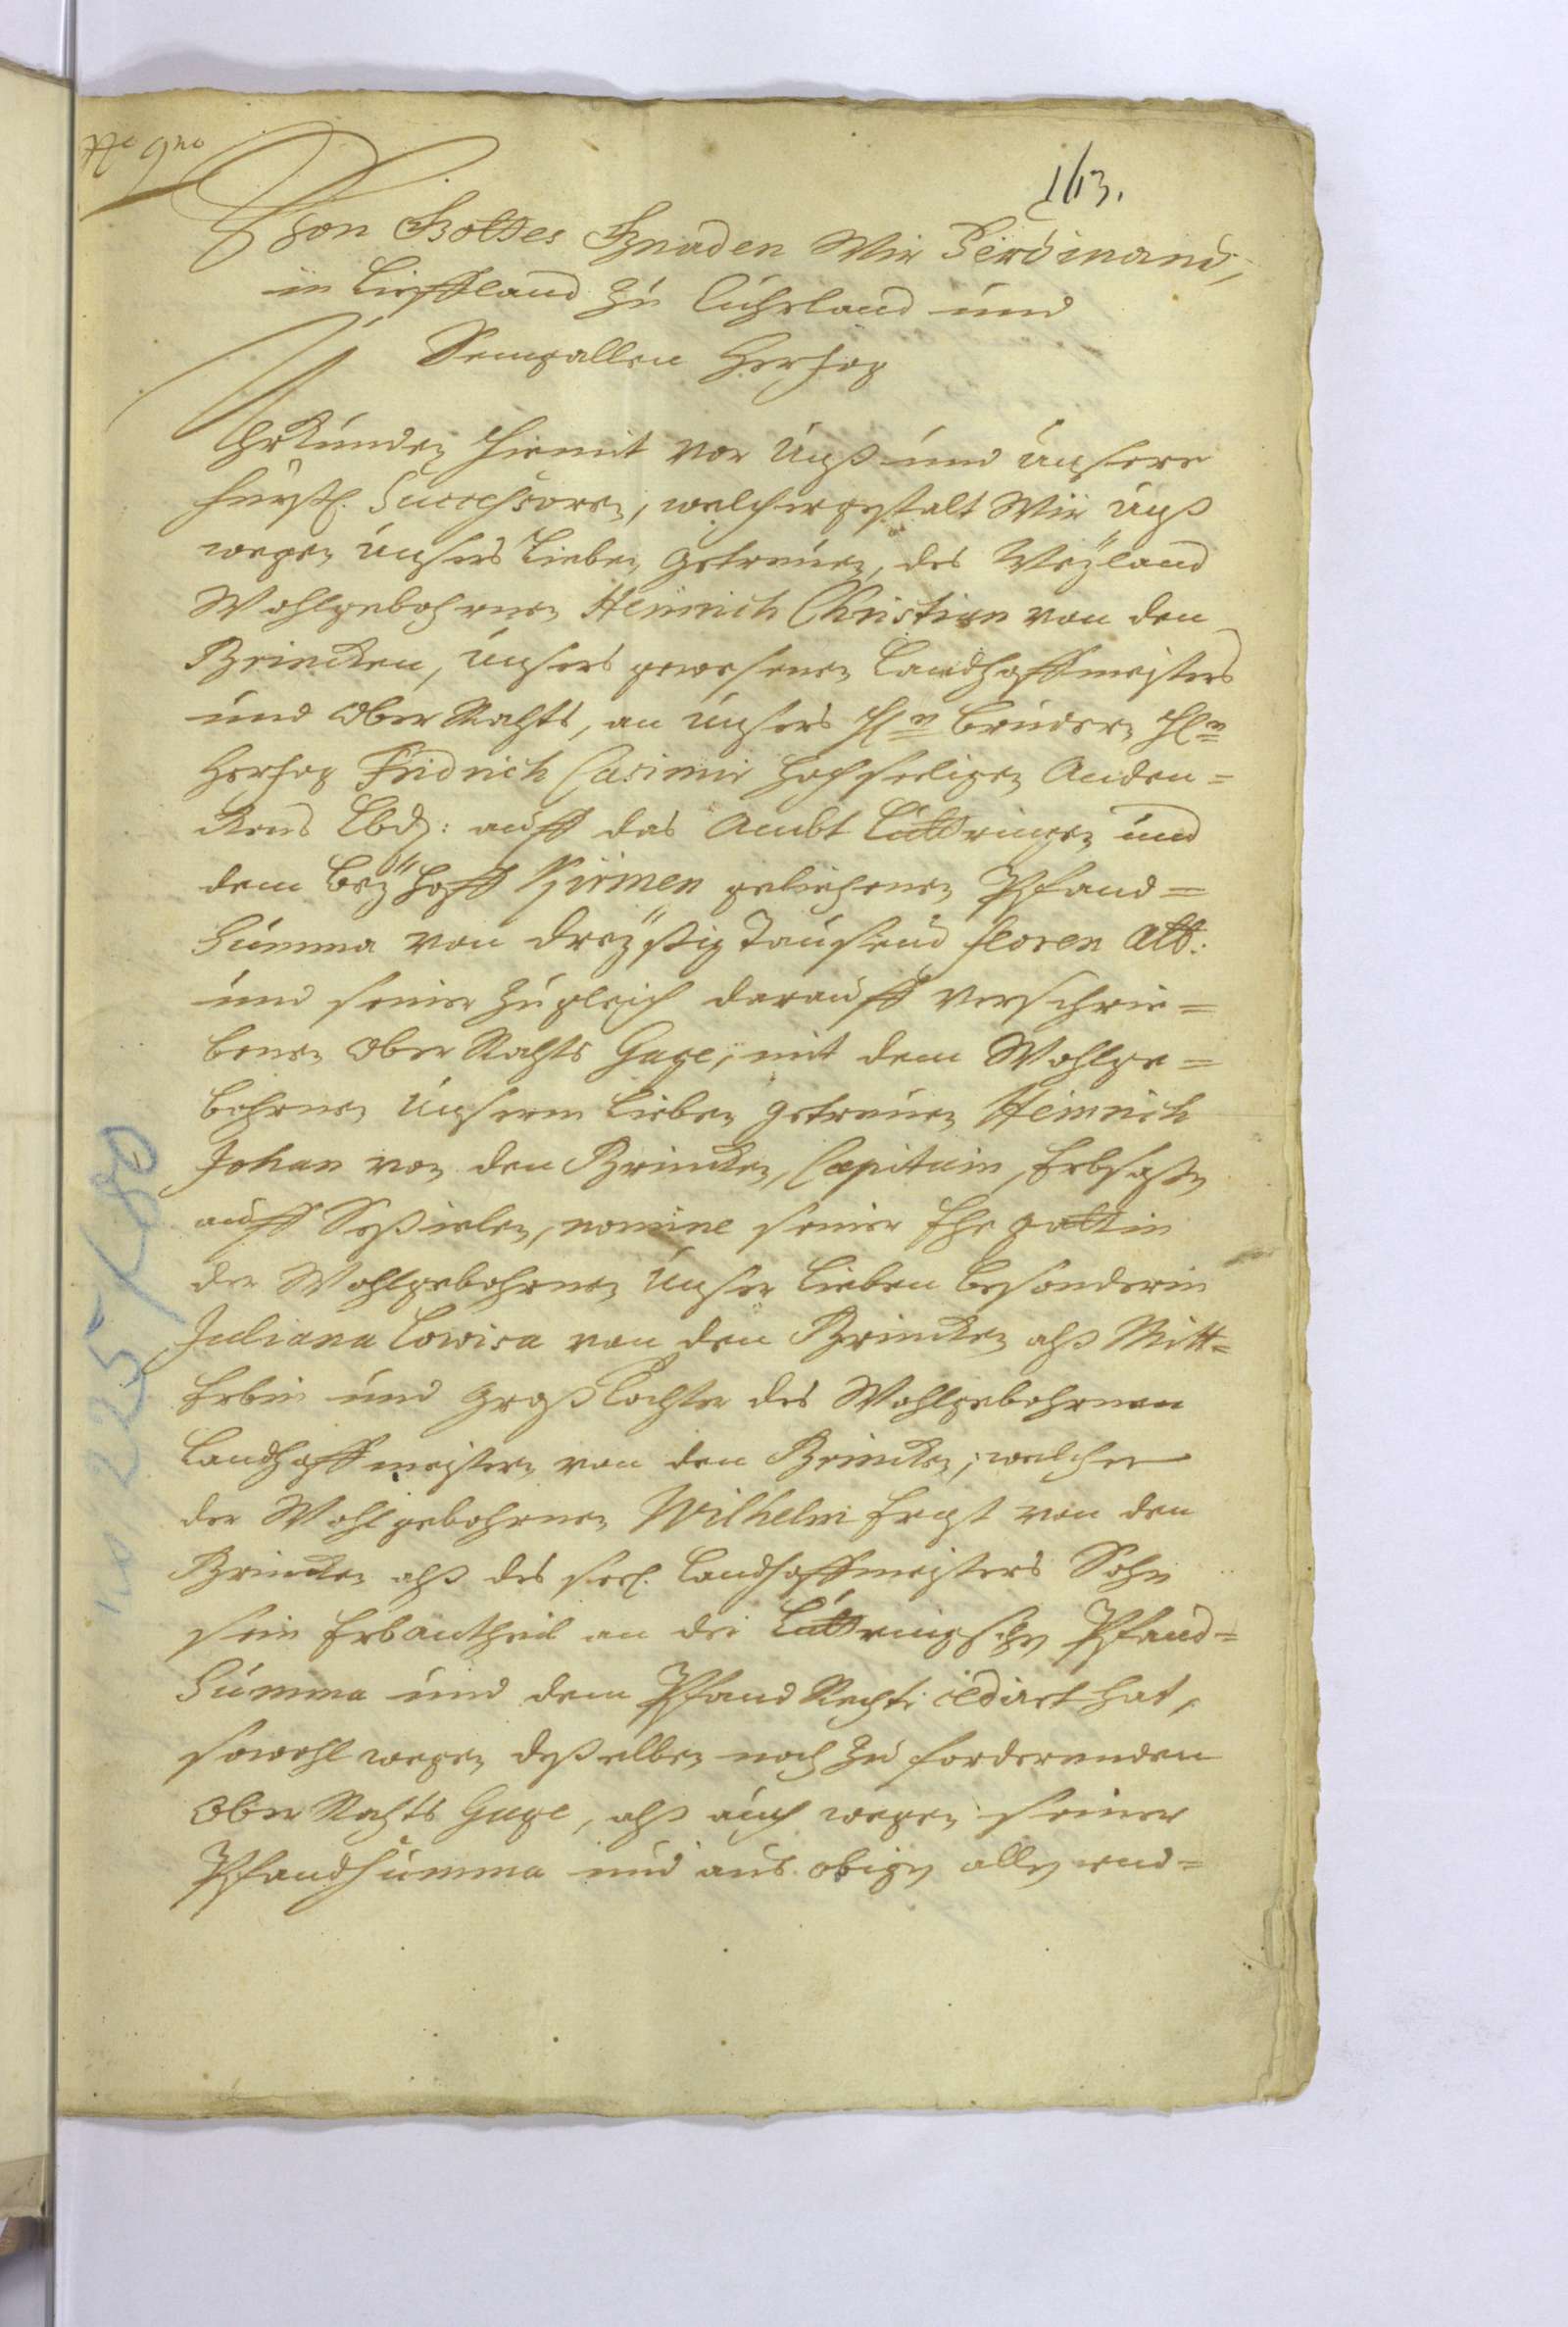 113.
Von Gottes Gnaden Wir Ferdinand,
in Liffland zu Cuhrland und
Semgallen Hertzog
Uhrkunden hiemit vor Unß und Unsere
fürstl. Successoren, welchergestalt Wir Unß
wegen Unsers Lieben getreuen, des Weÿland
Wohlgebohrnen Heinrich Christian von den
Brincken, Unsers gewesenen Landhoffmeisters
und Ober Rahts, an Unsers Hn Brudern Hn
Hertzog Fridrich Casimir hochseeligen Anden=
ckens Lbd: auff das Ambt Luttringen und
dem Beÿhoff Kirmen geliehenen Pfand=
Summa von dreÿßig Tausend floren Alb:
und seiner zugleich darauff verschrie=
benen Ober Rahts Gage, mit dem Wohlge=
bohrnen Unserm Lieben getreuen Heinrich
Johan von den Brincken, Capitain, Erbsaßen
auff, nomine seiner Ehe gattin
der Wohlgebohrnen Unser Lieben besonderin
Juliana Lowisa von den Brincken alß Mitt=
Erbin und Groß Tochter des Wohlgebohrnen
Landhoffmeistern von den Brincken, welcher
der Wohlgebohrnen Wilhelm Ernst von den
Brincken alß des seel. Landhoffmeisters Sohn
sein Erbantheil an der Luttringschen Pfand=
Summa und dem Pfand Recht cedirt hat,
sowohl wegen deßelben noch zu forderenden
Ober Rahts Gage, alß auch wegen seiner
Pfandsumma und aus obigen allen end=
225/80